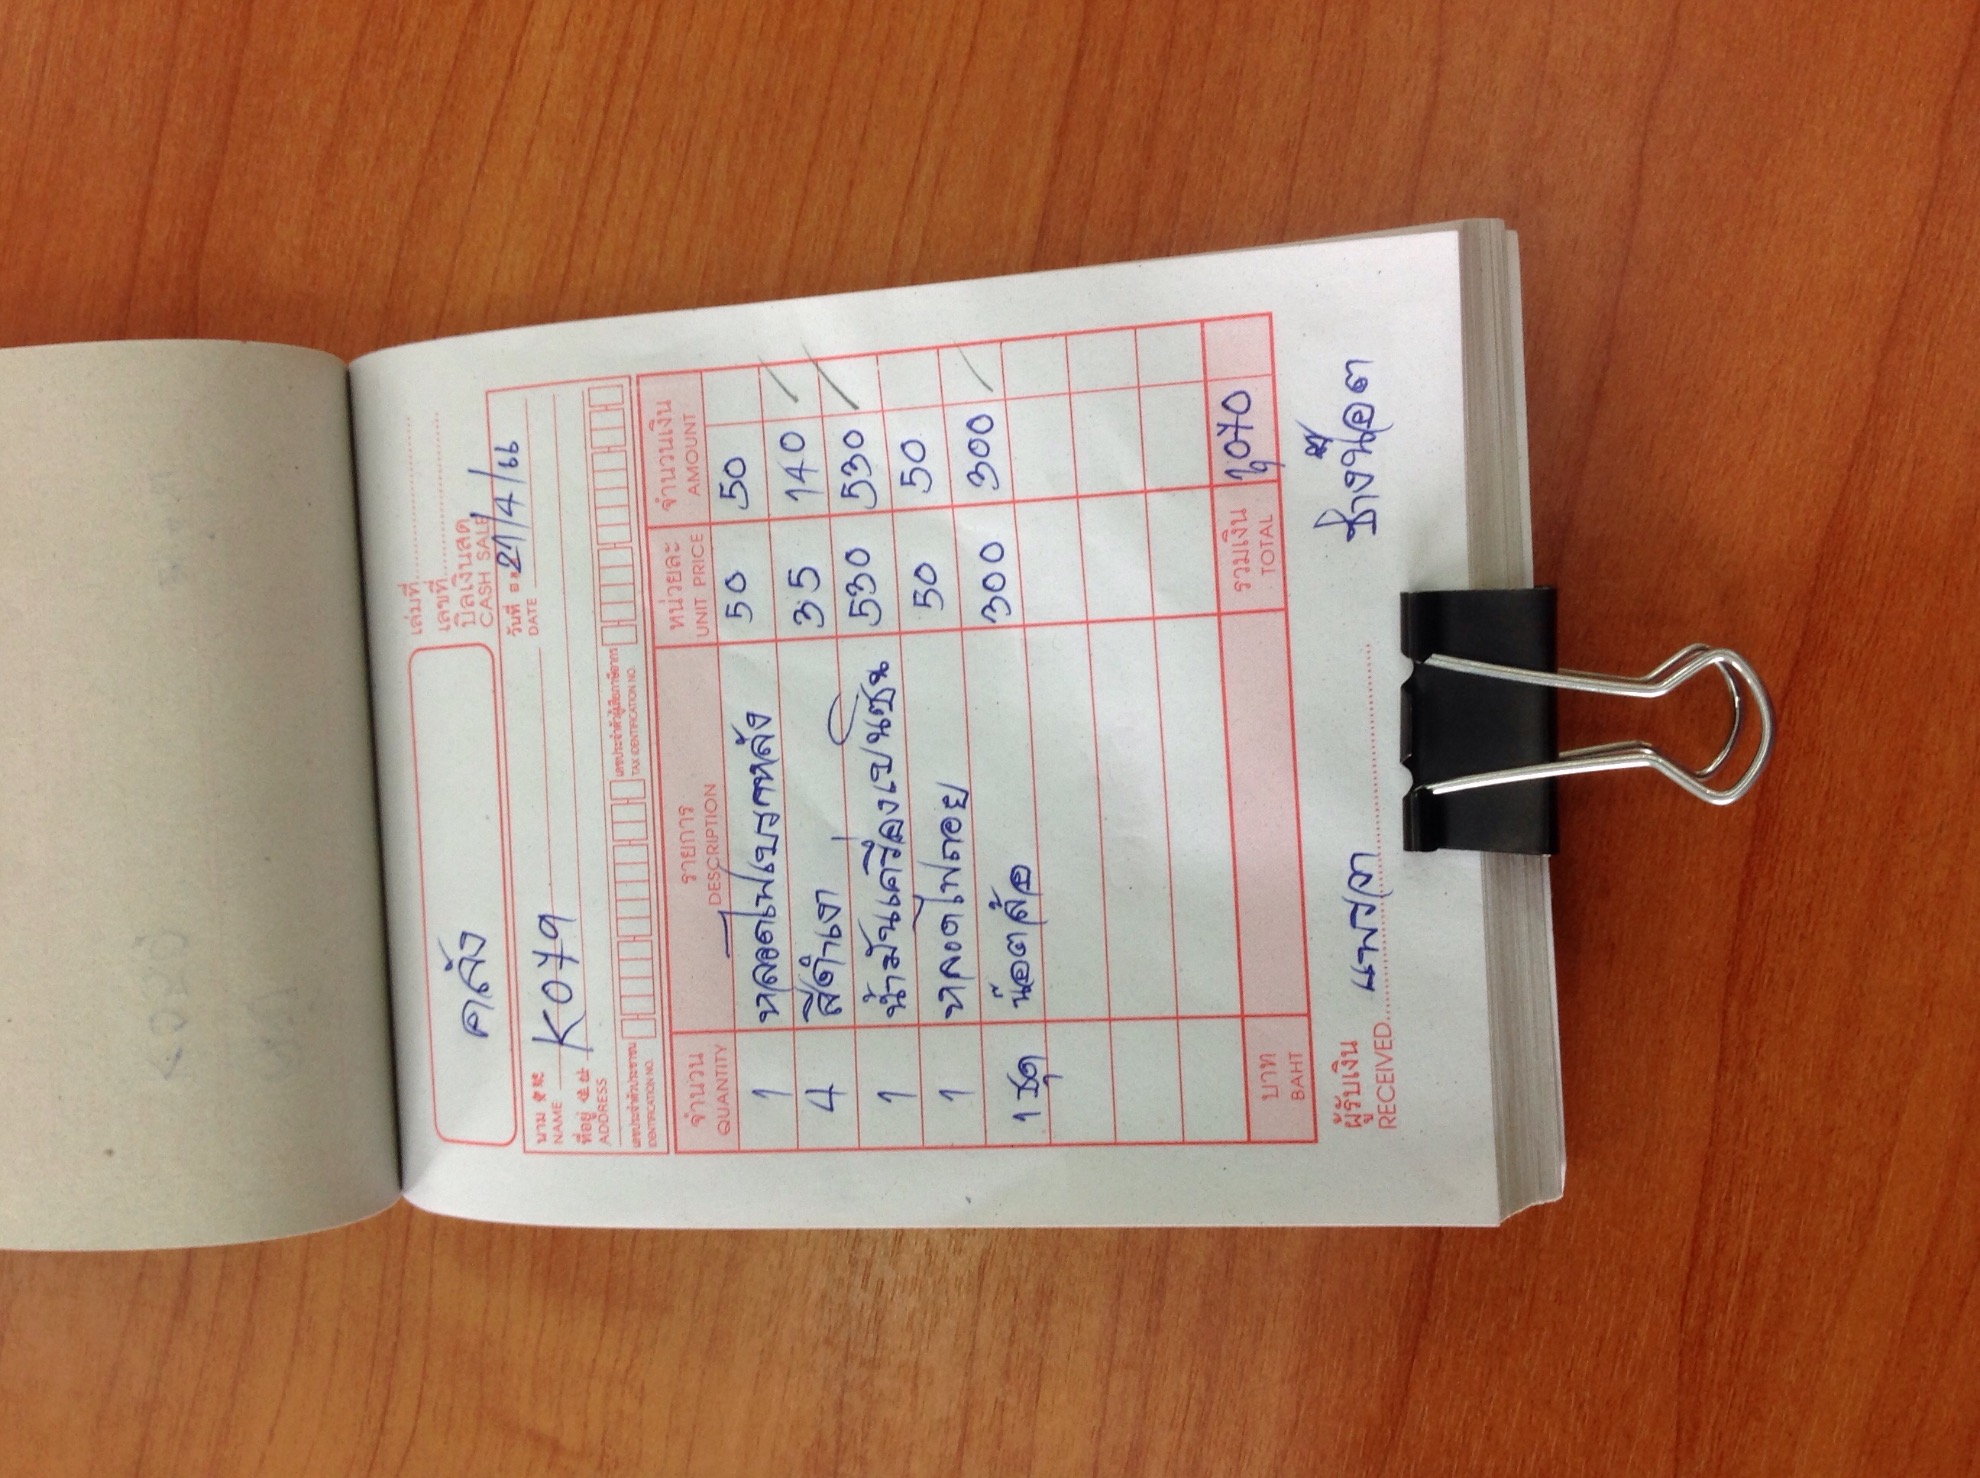 คลัง
เล่มที่
เลขที่
บิลเงินสด
CASH SALE
นาม K079 วันที่ 27/4/
NAME DATE
ที่อยู่
ADDRESS
เลขประจำตัวประชาชน เลขประจำตัวผู้เสียภาษีอากร
IDENTIFICATION NO. TAX IDENTIFICATION NO.
จำนวน รายการ หน่วยละ จำนวนเงิน
QUANTITY DESCRIPTION UNIT PRICE AMOUNT
1 หลอดไฟเบรกหลัง 50 50
4 สีดำเงา 35 140
1 น้ำมันเครื่องเบนซิน 530 530
1 หลอดไฟถอย 50 50
1 ชุด น๊อตล้อ 300 300
บาท รวมเงิน 1,070
BAHT TOTAL
ผู้รับเงิน แพรวา ช่างน๊อต
RECEIVED